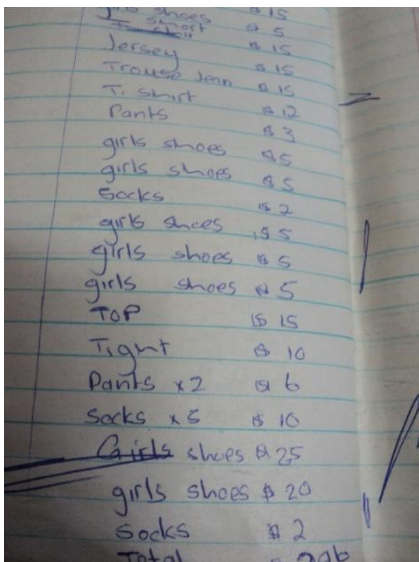 shoes $15
T. Short $5
$15
Jersey $15
Trouse Jean $15
T. Shirt $12
Pants $3
girls shoes $5
girls shoes $5
Socks $2
girls shoes $5
girls shoes $5
girls shoes $5
TOP $15
Tight $10
Pants x2 $6
Socks x5 $10
Girls shoes $25
girls shoes $20
Socks $2
Total